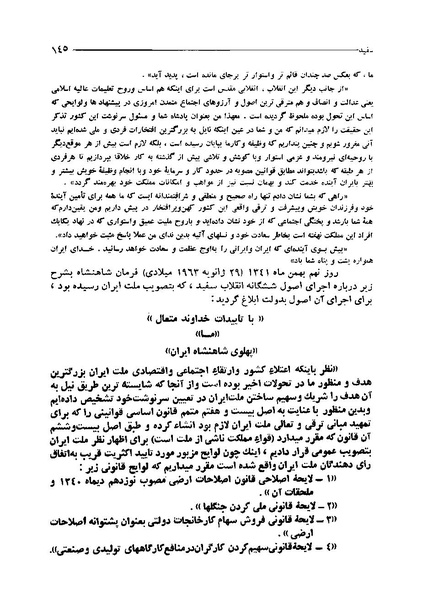 سفید ۱۴۵
ما ، که بعکس صد چندان قائم تر واستوار تر برجای مانده است ، پدید آید» .
«از جانب دیگر این انقلاب ، انقلابی مقدس است برای اینکه هم اساس وروح تعلیمات عالیهٔ اسلامی
یعنی عدالت و انصاف و هم مترقی ترین اصول و آرزوهای اجتماع متمدن امروزی در پیشنهادها ولوایحی که
اساس این تحول بوده ملحوظ گردیده است . معهذا من بعنوان پادشاه شما و مسئول سرنوشت این کشور تذکر
این حقیقت را لازم میدانم که من و شما در عین اینکه نایل به بزرگترین افتخارات فردی و ملی شده‌ایم نباید
آنی مغرور شویم و چنین پنداریم که وظیفه وکارما بپایان رسیده است ، بلکه لازم است بیش از هر موقع دیگر
با روحیه‌ای نیرومند و عزمی استوار وبا کوشش و تلاشی بیش از گذشته به کار خلاقا بپردازیم تا هرفردی
از هر طبقه که باشد بتواند مطابق قوانین مصوبه در حدود کار و سرمایهٔ خود وبا انجام وظیفهٔ خویش بیشتر و
بهتر بایران آینده خدمت کند و بهمان نسبت نیز از مواهب و امکانات مملکت خود بهره‌مند گردد» .
«راهی که بشما نشان دادم تنها راه صحیح و منطقی و شرافتمندانه است که ما همه برای تأمین آیندهٔ
خود وفرزندان خویش وپیشرفت و ترقی واقعی این کشور کهن وپر افتخار در پیش داریم ومن یقین دارم که
همهٔ شما بارشد و پختگی اجتماعی که از خود نشان داده‌اید و باروح مثبت عمیق واستواری که در نهاد یکایک
افراد این مملکت نهفته است بخاطر سعادت خود و نسلهای آتیه بدین ندای من عملا پاسخ مثبت خواهید داد».
«پیش بسوی آینده‌ای که ایران وایرانی را باوج عظمت و سعادت برساند . خدای ایران
همواره پشت و پناه شما باد»
روز نهم بهمن ماه ۱۳۴۱ (۲۹ ژانویه ۱۹۶۳ میلادی) فرمان شاهنشاه بشرح
زیر درباره اجرای اصول ششگانه انقلاب سفید ، که بتصویب ملت ایران رسیده بود ،
برای اجرای آن اصول بدولت ابلاغ گردید :
« با تأییدات خداوند متعال »
«مـا»
«پهلوی شاهنشاه ایران»
«نظر باینکه اعتلاءِ کشور وارتقاءِ اجتماعی واقتصادی ملت ایران بزرگترین
هدف و منظور ما در تحولات اخیر بوده است واز آنجا که شایسته ترین طریق نیل به
آن هدف را شریك وسهیم ساختن ملت ایران در تعیین سرنوشت خود تشخیص داده‌ایم
وبدین منظور با عنایت به اصل بیست و هفتم متمم قانون اساسی قوانینی را که برای
تمهید مبانی ترقی و تعالی ملت ایران لازم بود انشاء کرده و طبق اصل بیست وششم
آن قانون که مقرر میدارد (قواءِ مملکت ناشی از ملت است) برای اظهار نظر ملت ایران
بتصویب عمومی قرار دادیم ، اینك چون لوایح مزبور مورد تأیید اکثریت قریب به‌اتفاق
رأی دهندگان ملت ایران واقع شده است مقرر میداریم که لوایح قانونی زیر :
«۱ – لایحهٔ اصلاحی قانون اصلاحات ارضی مصوب نوزدهم دیماه ۱۳۴۰ و
ملحقات آن» .
«۲ – لایحهٔ قانونی ملی کردن جنگلها» .
«۳ – لایحهٔ قانونی فروش سهام کارخانجات دولتی بعنوان پشتوانه اصلاحات
ارضی» .
«۴ – لایحهٔ قانونی سهیم کردن کارگران در منافع کارگاههای تولیدی وصنعتی».